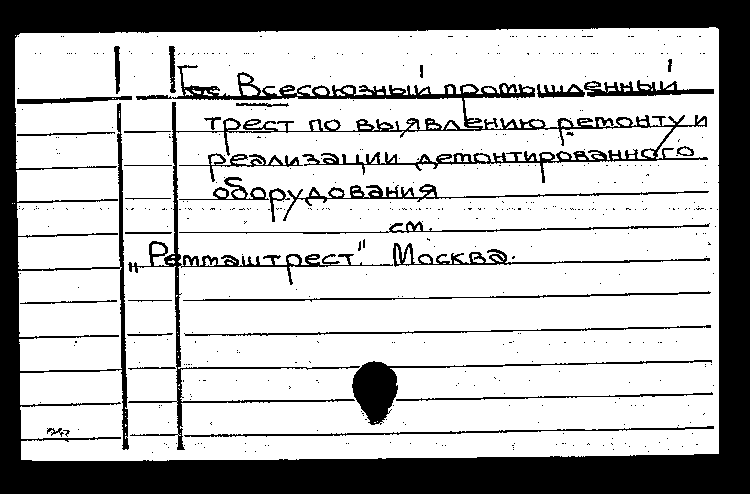 Гос. Всесоюзный промышленный
трест по выявлению ремонту и
реализации демонтированного
оборудования
см.
„Реммаштрест." Москва.